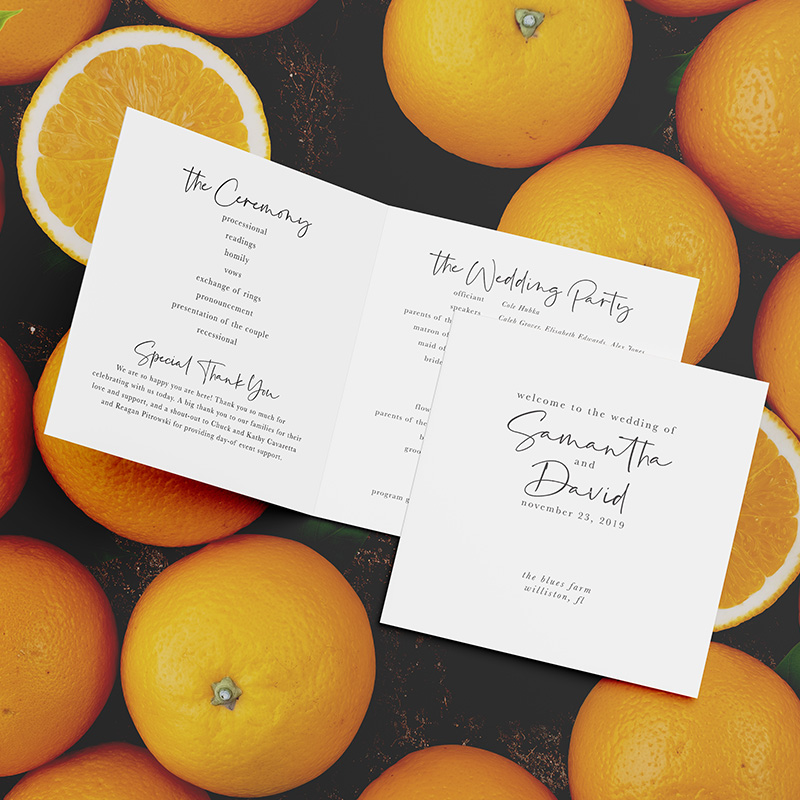 the Ceremony
processional
readings
homily
vows
exchange of rings
pronouncement
presentation of the couple
recessional
Special Thank You
We are so happy you are here! Thank you so much for
celebrating with us today. A big thank you to our families for their
love and support, and a shout-out to Chuck and Kathy Cavaretta
and Reagan Pitrowski for providing day-of event support.
the Wedding Party
officiant Cole Hubka
speakers Caleb Groves, Elisabeth Edwards, Alex Jones
parents of th
matron of
maid of
bride
flow
parents of the
b
groo
program g
welcome to the wedding of
Samantha
and
David
november 23, 2019
the blues farm
williston, fl